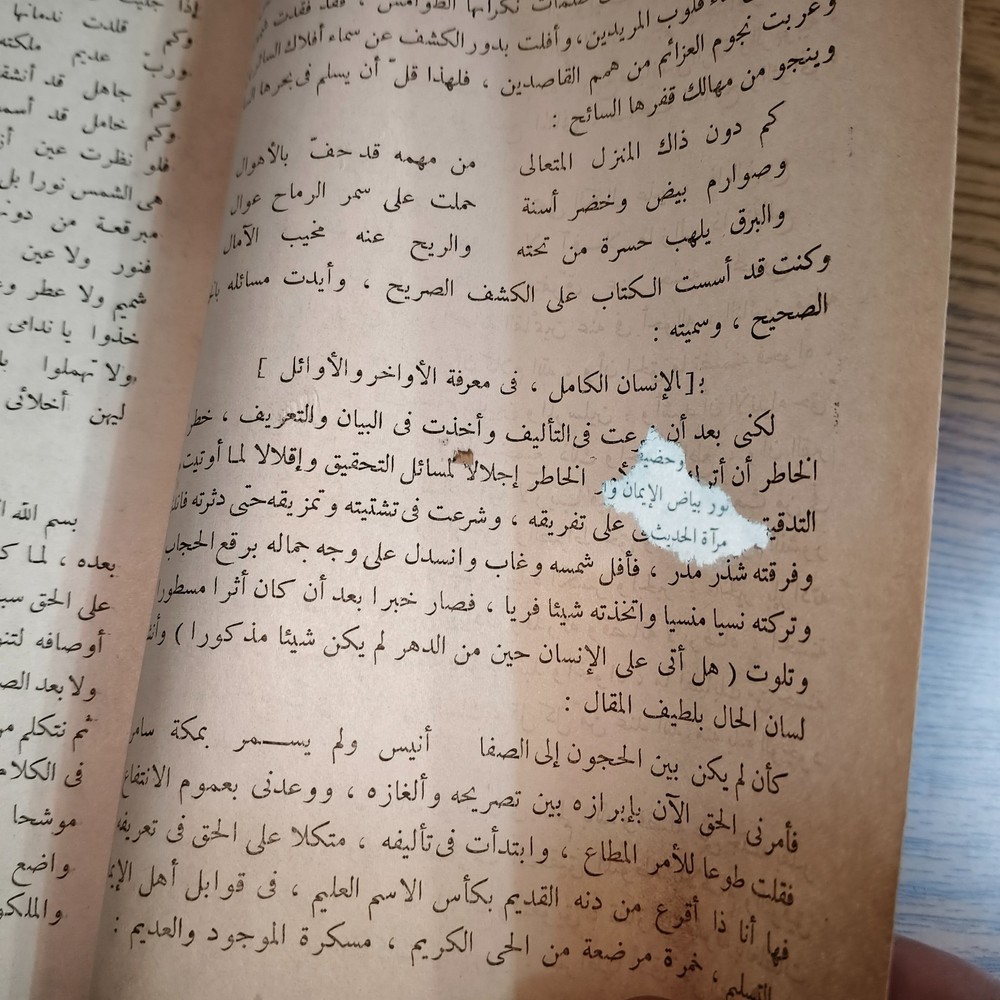 وغربت نجوم العزائم من همم القاصدين ، فلهذا قلّ أن يسلم فى بحرها
قلوب المريدين، وأفلت بدور الكشف عن سماء أفلاك
وينجو من مهالك قفرها السائح :
كم دون ذاك المنزل المتعالى من مهمه قد حفّ بالأهوال
وصوارم بيض وخضر أسنة حملت على سمر الرماح عوال
والبرق يلهب حسرة من تحته والريح عنه مخيب الآمال
وكنت قد أسست الكتاب على الكشف الصريح ، وأيدت مسائله
الصحيح ، وسميته :
بـ[الإنسان الكامل ، فى معرفة الأواخر والأوائل ]
لكنى بعد أن عت فى التأليف وأخذت فى البيان والتعريف ، خطر
الخاطر أن وحضي الخاطر إجلالا لمسائل التحقيق وإقلالا لما أوتيت
نور بياض الإيمان
التدقيق على تفريقه ، وشرعت فى تشتيته وتمزيقه حتى دثرته
مرآة الحديث
وفرقته شذر مذر ، فأفل شمسه وغاب وانسدل على وجه جماله برقع الحجاب
وتركته نسيا منسيا واتخذته شيئا فريا ، فصار خبرا بعد أن كان أثرا مسطورا
وتلوت ( هل أتى على الإنسان حين من الدهر لم يكن شيئا مذكورا )
لسان الحال بلطيف المقال :
كأن لم يكن بين الحجون إلى الصفا أنيس ولم يســمر بمكة سامر
فأمرنى الحق الآن بإبرازه بين تصريحه وألغازه ، ووعدنى بعموم الانتفاع
فقلت طوعا للأمر المطاع ، وابتدأت فى تأليفه ، متكلا على الحق فى تعريفه
فها أنا ذا أقرع من دنه القديم بكأس الاسم العليم ، فى قوابل أهل
التسليم ، خمرة مرضعة من الحى الكريم ، مسكرة الموجود والعديم :
وكم قلدت ندمانها
ورب عديم ملكته
وكم جاهل قد
وكم خامل قد
فلو نظرت عين
هى الشمس نورا بل
مبرقعة من
فنور ولا عين
شميم ولا عطر
خذوا يا ندامى
ولا تهملوا
ليهن أخلائى
بسم الله
بعده ، لما
على الحق
أوصافه
ولا بعد
ثم نتكلم
فى الكلام
موشحا
واضع